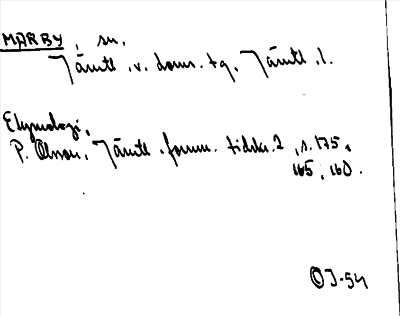 MARBY, sn.
Jämtl. v. doms. tg, Jämtl. l.
Etymologi.
P. Olsson, Jämtl. fornm. tidskr. 2, s. 175,
165, 160.
OJ-54